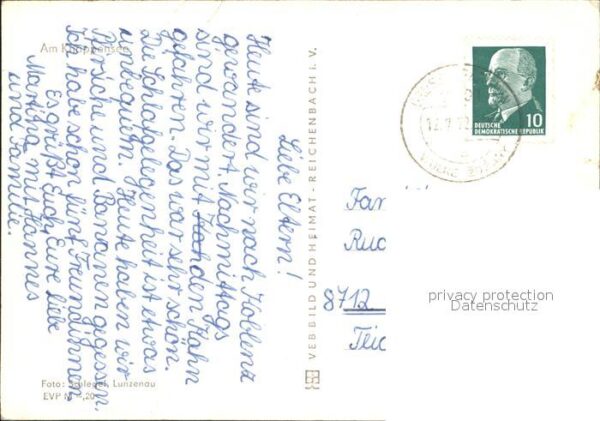 Am Knappensee
Liebe Eltern!
Heute sind wir nach Koblenz
gewandert. Nachmittags
sind wir mit den Kahn
gefahren. Das war sehr schön.
Die Schlafgelegenheit ist etwas
unbequem. Heute haben wir
Pirsche und Bananen gegessen.
Ich habe schon fünf Freundinnen
Es grüßt Euch, Eure liebe
Martina mit Hannes
und Familie.
Foto: Schlegel, Lunzenau
EVP M -,20
VEB BILD UND HEIMAT · REICHENBACH i. V.
10
DEUTSCHE
DEMOKRATISCHE REPUBLIK
Fam
Rud
8712
privacy protection
Datenschutz